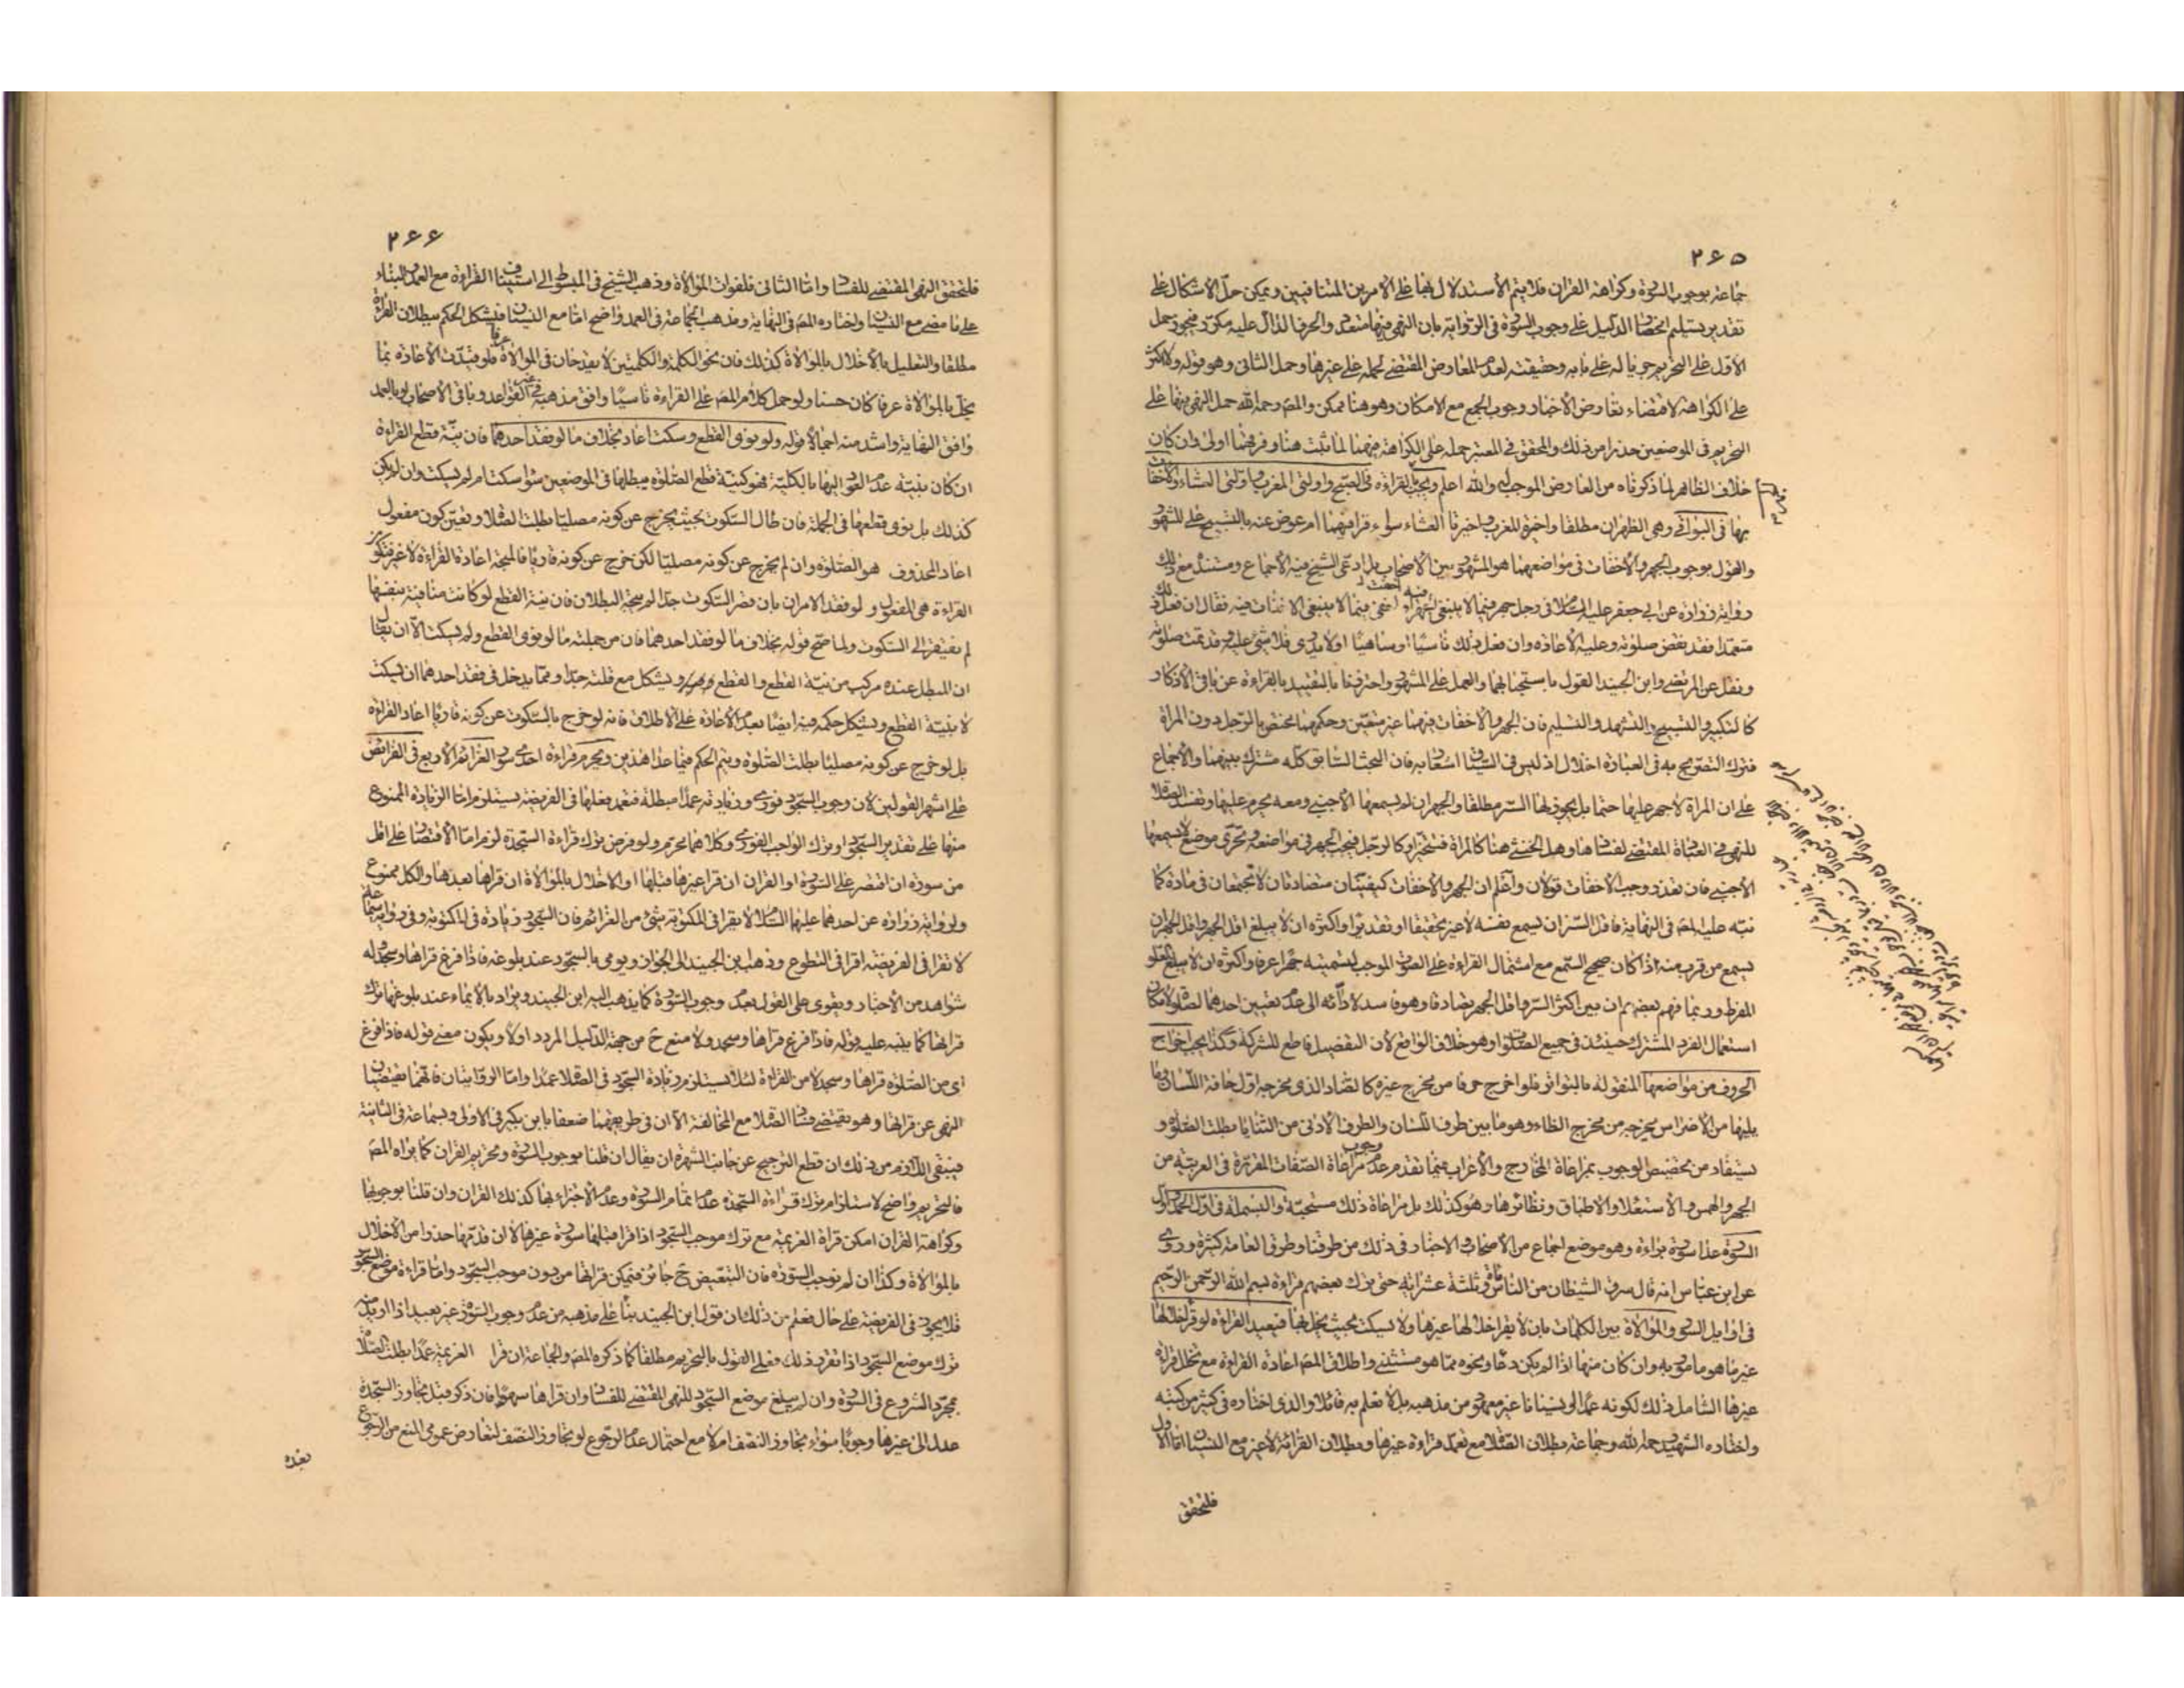 ٢٦٥
جماعة بوجوب السورة وكراهة القران فلا يتم الاستدلال بها على الامرين المتنافيين ويمكن حل الاشكال على
تقدير تسليم انحصار الدليل على وجوب السورة في الرواية بان النهي فيها متعدد والحرف الدال عليه مكرر فيجوز حمل
الاول على التحريم حريا له على بابه وحقيقته لعدم المعارض المقتضي لحمله على غيرها وحمل الثاني وهو قوله ولا اكثر
على الكراهة لاقتضاء تعارض الاخبار وجوب الجمع مع الامكان وهو هنا ممكن والمصـ رحمه الله حمل النهي فيها على
التحريم في الموضعين حذرا من ذلك والمحقق في المعتبر حمله على الكراهة فيهما لما ثبت هنا وفرضها اولى وان كان
خلاف الظاهر لما ذكرناه من العارض الموجب له والله اعلم ويجب القراءة في الصبح واولتي المغرب واولتي العشاء والاخفات
بها في البواقي وهي الظهران مطلقا واخيرة المغرب واخيرتا العشاء سواء قرا فيهما ام عوض عنه بالتسبيح على المشهور
والقول بوجوب الجهر والاخفات في مواضعهما هو المشهور بين الاصحاب بل ادعى الشيخ فيه الاجماع ومستنده مع ذلك
رواية زرارة عن ابي جعفر عليه السلام في رجل جهر فيما لا ينبغي الجهر فيه او اخفى فيما لا ينبغي الاخفات فيه فقال ان فعل ذلك
متعمدا فقد نقض صلوته وعليه الاعادة وان فعل ذلك ناسيا او ساهيا او لا يدري فلا شئ عليه وقد تمت صلوته
ونقل عن المرتضى وابن الجنيد القول باستحبابهما والعمل على المشهور واحترزنا بالتقييد بالقراءة عن باقي الاذكار
كالتكبير والتسبيح والتشهد والتسليم فان الجهر والاخفات فيهما غير متعين وحكمهما مختص بالرجل دون المراة
فترك التصريح به في العبارة اخلال اذ ليس في السياق اشعار به فان البحث السابق كله مشترك بينهما والاجماع
على ان المراة لا جهر عليها حتما بل يجوز لها السر مطلقا والجهر ان لم يسمعها الاجنبي ومعه يحرم عليها وتفسد الصلاة
للنهي في العبادة المقتضي لفسادها وهل الخنثى هنا كالمراة فتتخير او كالرجل فيجب الجهر في مواضعه وتحرى موضع لا يسمعها
الاجنبي فان تعذر وجب الاخفات قولان واعلم ان الجهر والاخفات كيفيتان متضادتان لا تجتمعان في مادة كما
نبه عليه المصـ في النهاية فاقل السر ان يسمع نفسه لا غير تحقيقا او تقديرا واكثره ان لا يبلغ اقل الجهر واقل الجهر ان
يسمع من قرب منه اذا كان صحيح السمع مع اشتمال القراءة على الصوت الموجب لتسميته جهرا عرفا واكثره ان لا يبلغ العلو
المفرط وربما فهم بعضهم ان بين اكثر السر واقل الجهر تصادقا وهو فاسد لادائه الى عدم تعيين احدهما لصلوة لامكان
استعمال الفرد المشترك حينئذ في جميع الصلوات وهو خلاف الواقع لان التفصيل قاطع للشركة وكذا يجب اخراج
الحروف من مواضعها المنقولة بالتواتر فلو اخرج حرفا من مخرج غيره كالضاد الذي مخرجه اول حافة اللسان وما
يليها من الاضراس يخرجه من مخرج الظاء وهو ما بين طرف اللسان والطرف الادنى من الثنايا بطلت الصلوة و
يستفاد من تخصيص الوجوب بمراعاة المخارج والاعراب فيما تقدم عدم وجوب مراعاة الصفات المقررة في العربية من
الجهر والهمس والاستعلاء والاطباق ونظائرها وهو كذلك بل مراعاة ذلك مستحبة والبسملة في اول الحمد واول
السورة عدا سورة براءة وهو موضع اجماع من الاصحاب والاخبار في ذلك من طرقنا وطرق العامة كثيرة وروى
عن ابن عباس انه قال سرق الشيطان من الناس مائة وثلثة عشر اية حتى ترك بعضهم قراءة بسم الله الرحمن الرحيم
في اوايل السور والموالاة بين الكلمات بان لا يقرا خلالها غيرها ولا يسكت بحيث يخل بها فيعيد القراءة لو قرا خلالها
غير ما هو مامور به وان كان منها اذا لم يكن دعاء ونحوه مما هو مستثنى واطلاق المصـ اعادة القراءة مع تخلل قراءة
غيرها الشامل ذلك لكونه عمدا او نسيانا غير معهود من مذهبه بل لا نعلم به قائلا والذي اختاره في كثير من كتبه
واختاره الشهيد رحمه الله وجماعة بطلان الصلاة مع تعمد قراءة غيرها وبطلان القراءة لا غير مع النسيان اما الاول
فلتحقق
٢٦٦
فلتحقق النهي المقتضي للفساد واما الثاني فلفوات الموالاة وذهب الشيخ في المبسوط الى استيناف القراءة مع العمد والبناء
على ما مضى مع النسيان واختاره المصـ في النهاية ومذهب الجماعة في العمد واضح اما مع النسيان فيشكل الحكم ببطلان القراءة
مطلقا والتعليل بالاخلال بالموالاة كذلك فان نحو الكلمة والكلمتين لا يقدحان في الموالاة عرفا فلو قيدت الاعادة بما
يخل بالموالاة عرفا كان حسنا ولو حمل كلام المصـ على القراءة ناسيا وافق مذهبه في غير القواعد وباقي الاصحاب او بالعمد
وافق النهاية واشد منه اجمالا قوله ولو نوى القطع وسكت اعاد بخلاف ما لو فقد احدهما فان نية قطع القراءة
ان كان بنية عدم العود اليها بالكلية فهو كنية قطع الصلوة يبطلها في الموضعين سواء سكت ام لم يسكت وان لم يكن
كذلك بل نوى قطعها في الجملة فان طال السكوت بحيث يخرج عن كونه مصليا بطلت الصلاة وتعين كون مفعول
اعاد المحذوف هو الصلوة وان لم يخرج عن كونه مصليا لكن خرج عن كونه قاريا فالمتجه اعادة القراءة لا غير فتكون
القراءة هي المفعول ولو فقد الامران بان قصر السكوت جدا لم يتجه البطلان فان نية القطع لو كانت منافية بنفسها
لم يفتقر الى السكوت ولما صح قوله بخلاف ما لو فقد احدهما فان من جملته ما لو نوى القطع ولم يسكت الا ان يقال
ان المبطل عنده مركب من نية القطع والقطع ويشكل مع قلته جدا ومما يدخل في فقد احدهما ان يسكت
لا بنية القطع ويشكل حكمه فيه ايضا بعدم الاعادة على الاطلاق فانه لو خرج بالسكوت عن كونه قاريا اعاد القراءة
بل لو خرج عن كونه مصليا بطلت الصلوة ويتم الحكم فيما عدا هذين ويحرم قراءة احدى سور العزائم الاربع في الفرايض
على اشهر القولين لان وجوب السجود فوري وزيادته عمدا مبطلة فتعمد فعلها في الفريضة يستلزم اما الزيادة الممنوع
منها على تقدير السجود او ترك الواجب الفوري وكلاهما محرم ولو فرض ترك قراءة السجدة لزم اما الاقتصار على اقل
من سورة ان اقتصر على السورة او القران ان قرا غيرها قبلها او الاخلال بالموالاة ان قراها بعدها والكل ممنوع
ولرواية زرارة عن احدهما عليهما السلام لا يقرا في المكتوبة بشئ من العزائم فان السجود زيادة في المكتوبة وفي رواية سماعة
لا تقرا في الفريضة اقرا في التطوع وذهب ابن الجنيد الى الجواز ويومي بالسجود عند بلوغه فاذا فرغ قراها وسجد وله
شواهد من الاخبار ويقوى على القول بعدم وجوب السورة كما يذهب اليه ابن الجنيد ويزاد بالايماء عند بلوغها ترك
قرائتها كما ينبه عليه قوله فاذا فرغ قراها وسجد ولا منع ح من جهة الدليل المردد اولا ويكون معنى قوله فاذا فرغ
اي من الصلوة قراها وسجد لا من القراءة لئلا يستلزم زيادة السجود في الصلاة عمدا واما الروايتان فانهما تقتضيان
النهي عن قرائتها وهو يقتضي فساد الصلاة مع المخالفة الا ان في طريقهما ضعفا بابن بكير في الاولى وبسماعة في الثانية
فينبغي اللازم من ذلك ان قطع الترجيح عن جانب الشهرة ان يقال ان قلنا بوجوب السورة وتحريم القران كما يراه المصـ
فالتحريم واضح لاستلزام ترك قراءة السجدة عدم اتمام السورة وعدم الاجتزاء بها كذلك القران وان قلنا بوجوبها
وكراهة القران امكن قراءة العزيمة مع ترك موجب السجود اذا قرا قبلها سورة غيرها لا ان قدمها حذرا من الاخلال
بالموالاة وكذا ان لم نوجب السورة فان التبعيض ح جائز فتمكن قرائتها من دون موجب السجود واما قراءة موضع السجود
فلا يجوز في الفريضة على حال فعلم من ذلك ان قول ابن الجنيد بناء على مذهبه من عدم وجوب السورة غير بعيد اذا اريد منه
ترك موضع السجود اذا تقرر ذلك فعلى القول بالتحريم مطلقا كما ذكره المصـ والجماعة ان قرا العزيمة عمدا بطلت الصلاة
بمجرد الشروع في السورة وان لم يبلغ موضع السجود للنهي المقتضي للفساد وان قراها سهوا فان ذكر قبل تجاوز السجدة
عدل الى غيرها وجوبا سواء تجاوز النصف ام لا مع احتمال عدم الرجوع لو تجاوز النصف لتعارض عمومي المنع من الرجوع
بعده